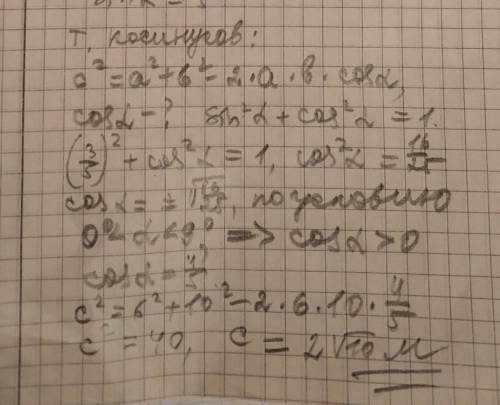 т. косинусов:
c² = a² + b² - 2·a·b·cosα,
cosα - ? sin²α + cos²α = 1.
(3/5)² + cos²α = 1, cos²α = 16/25
cosα = ±√16/25, по условию
0° < α < 90° => cosα > 0
cosα = 4/5
c² = 6² + 10² - 2·6·10·4/5
c² = 40, c = 2√10 м